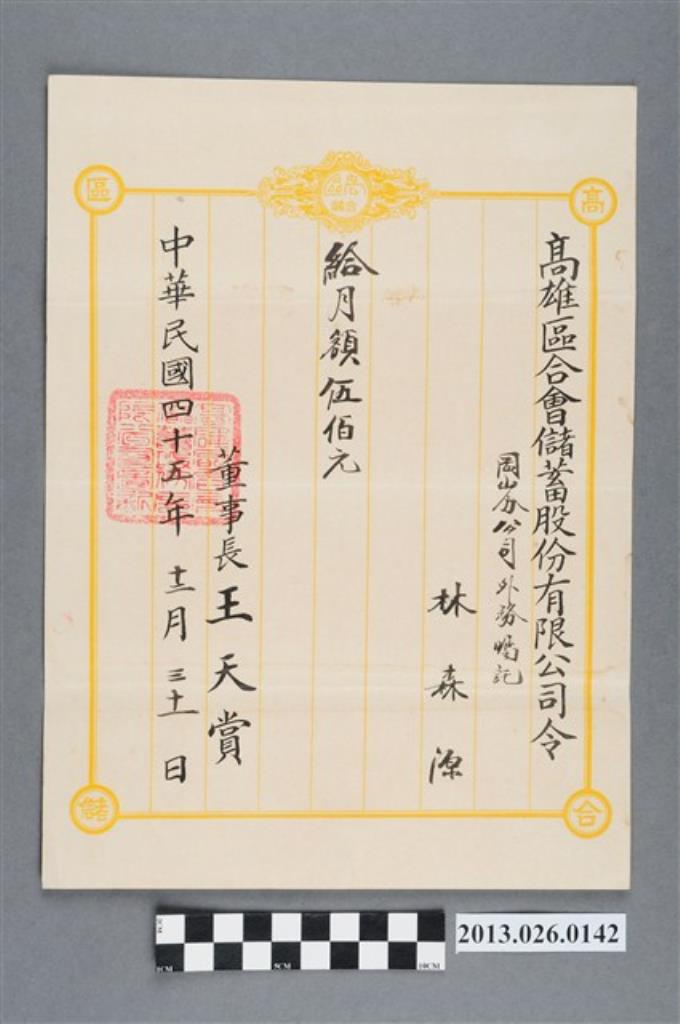 高雄區合會儲蓄股份有限公司令
岡山分公司外務嘱記
林森源
給月額伍佰元
董事長王天賞
中華民國四十五年十二月三十一日
高
區
合
儲
5CM
10CM
2013.026.0142